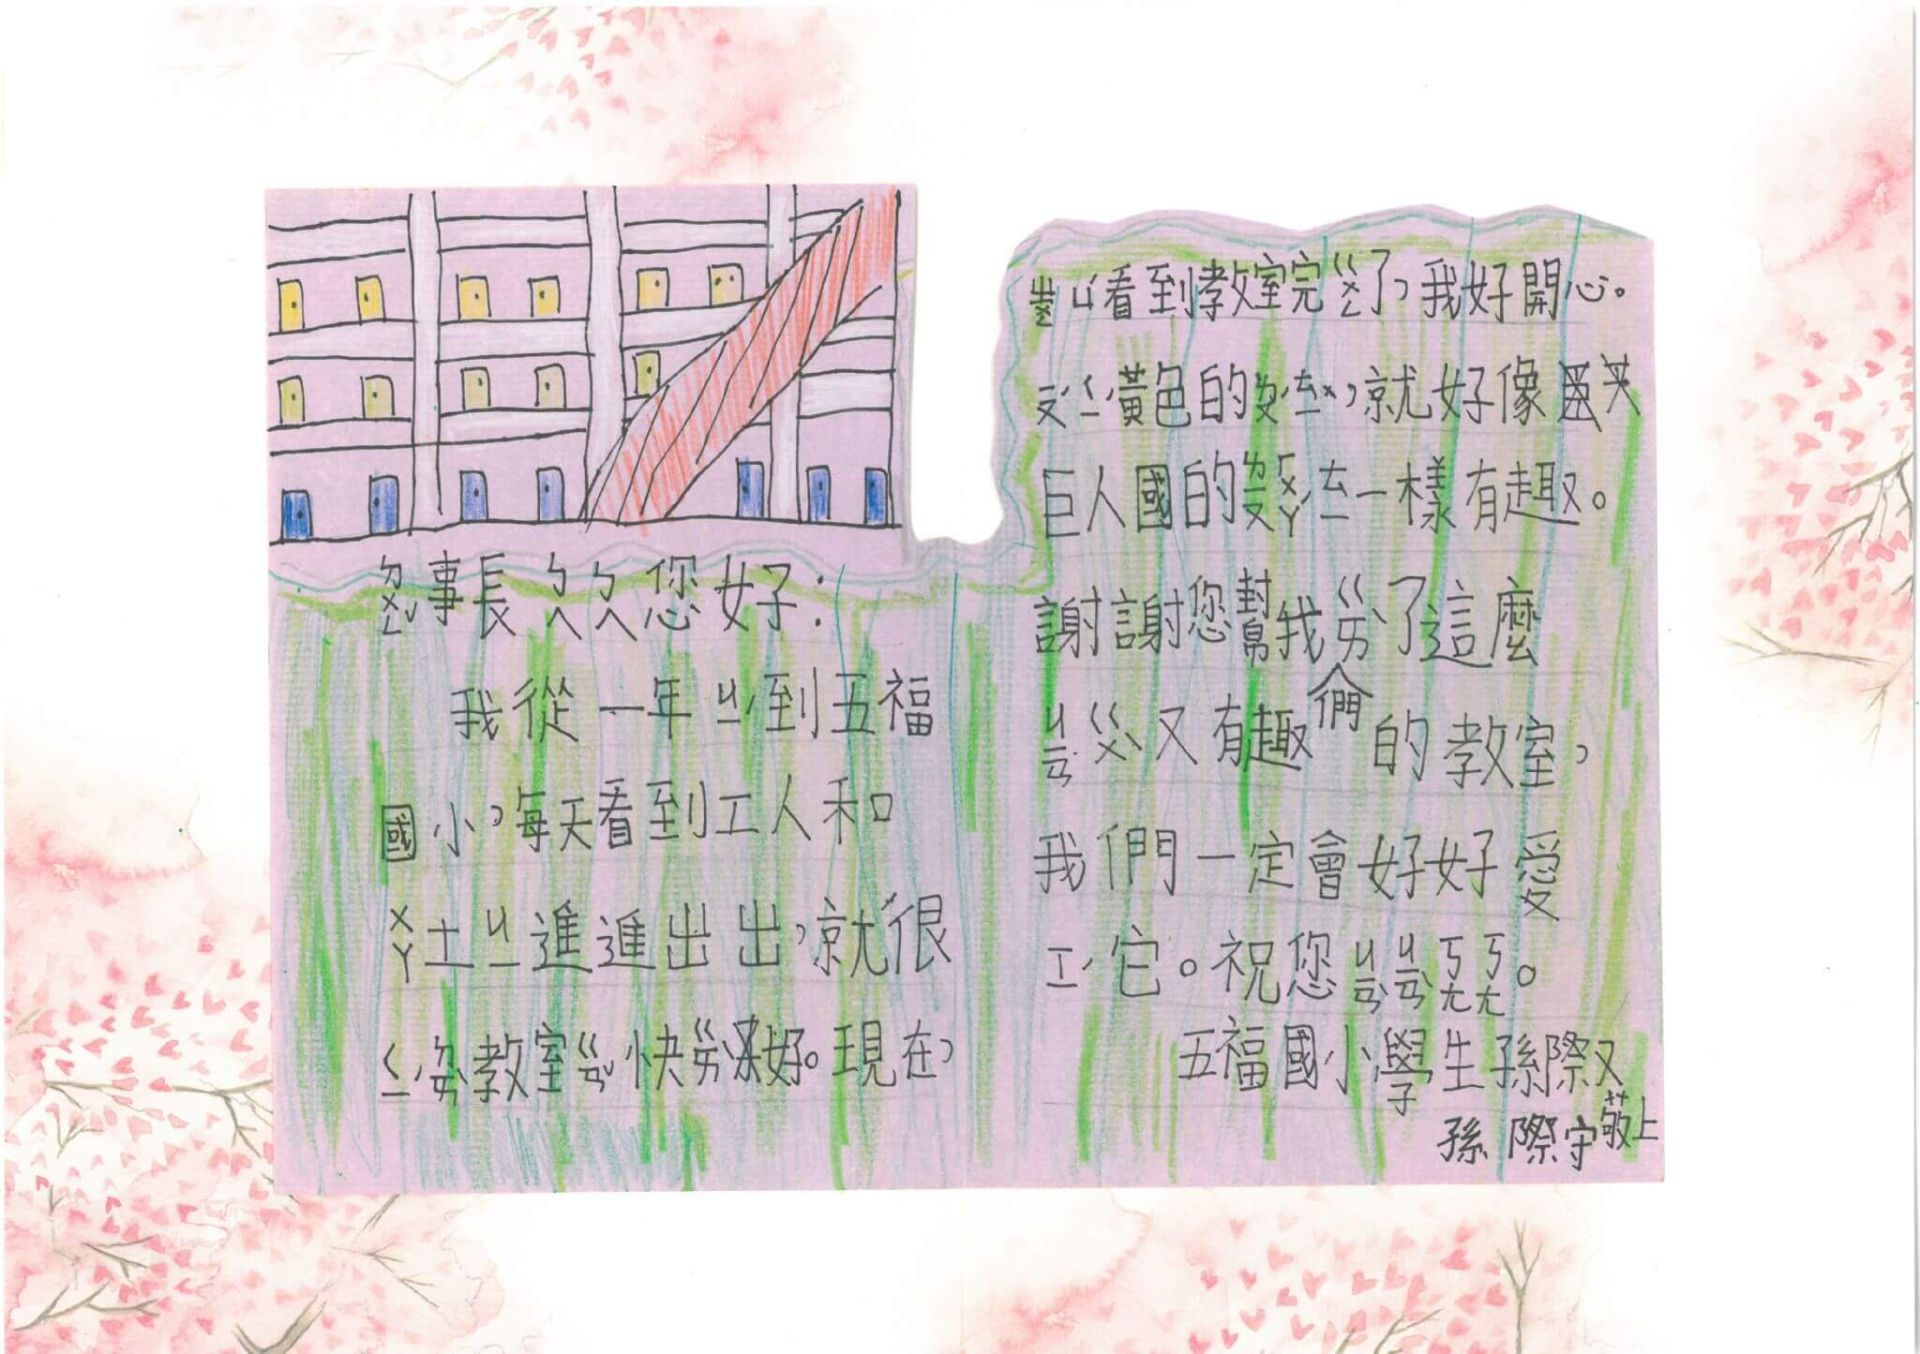 ㄉㄨㄥˇ事長ㄅㄟˊㄅㄟˊ您好：
我從一年ㄐㄧˊ到五福
國小，每天看到工人和
ㄨㄚ土ㄐㄧ進進出出，就很
ㄑㄧˊㄉㄞˋ教室ㄍㄢˇ快ㄍㄞˋ好。現在，
ㄓㄨㄥ ㄩˊ看到教室完ㄍㄨㄥ了，我好開心。
ㄡˊㄑㄧˊ黃色的，就好像
巨人國的ㄏㄨㄚˊㄊㄧ一樣有趣。
謝謝您幫我們ㄍㄞˋ了這麼
ㄐㄢ ㄍㄨˋ又有趣的教室，
我們一定會好好愛
ㄒㄧˊ它。祝您ㄐㄢˋㄐㄢˋㄎㄤㄎㄤ。
五福國小學生孫際又
孫際守敬上